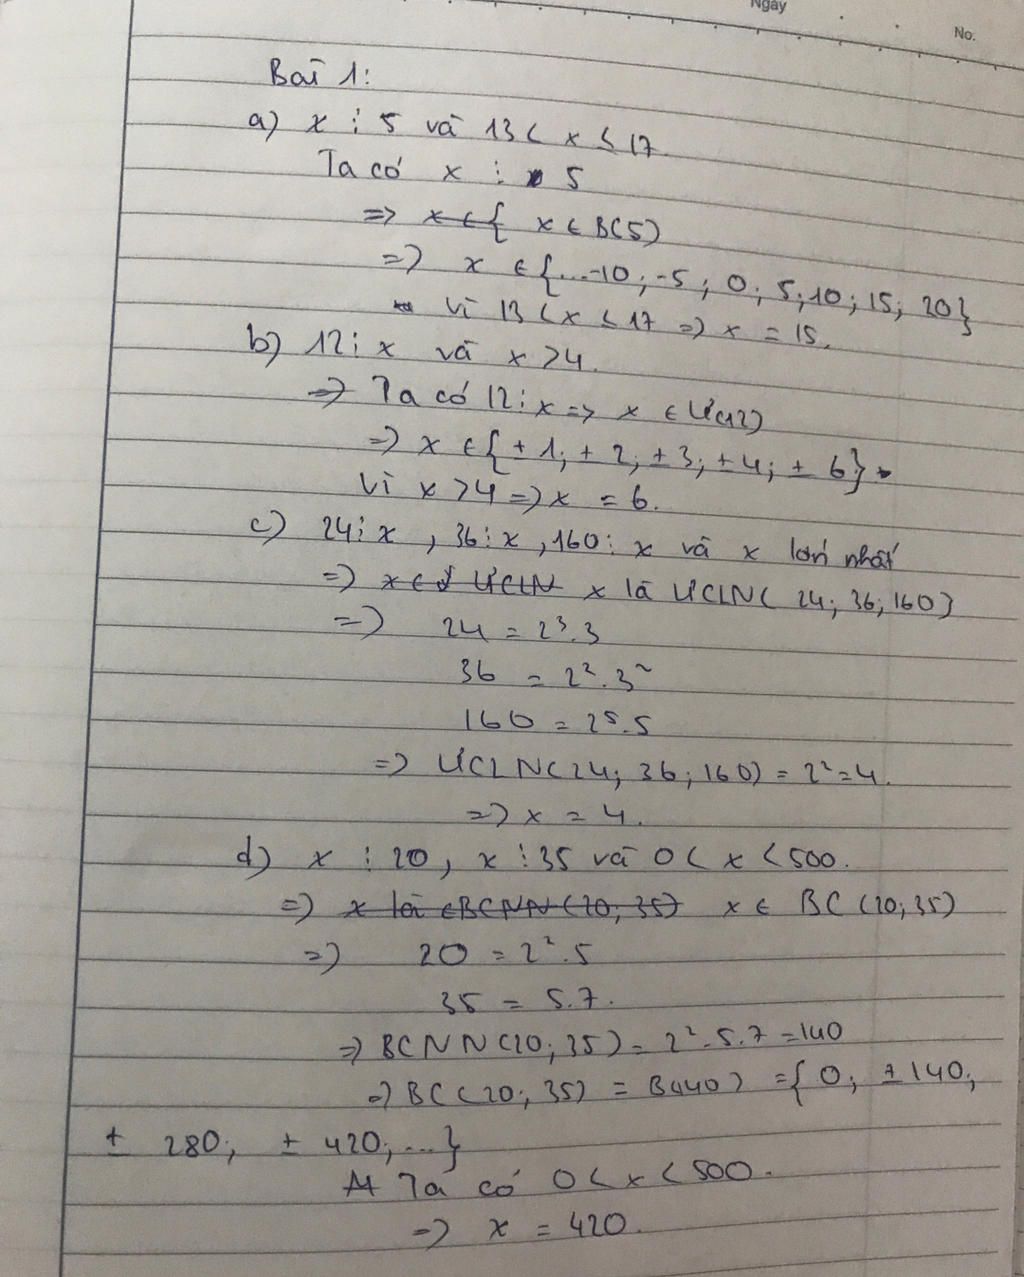 Ngày
No.
Bài 1:
a) x ⋮ 5 và 13 < x ≤ 17
Ta có x ⋮ 5
=> x ∈ { x ∈ B(5)
=> x ∈ {...-10; -5; 0; 5; 10; 15; 20}
Vì 13 < x ≤ 17 => x = 15.
b) 12 ⋮ x và x > 4.
=> Ta có 12 ⋮ x => x ∈ Ư(12)
=> x ∈ {±1; ±2; ±3; ±4; ±6}
Vì x > 4 => x = 6.
c) 24 ⋮ x, 36 ⋮ x, 160 ⋮ x và x lớn nhất
=> x ∈ ƯCLN x là ƯCLN(24; 36; 160)
=> 24 = 2³.3
36 = 2².3²
160 = 2⁵.5
=> ƯCLN(24; 36; 160) = 2² = 4.
=> x = 4.
d) x ⋮ 20, x ⋮ 35 và 0 < x < 500.
=> x là ∈BCNN(20; 35) x ∈ BC(20; 35)
=> 20 = 2².5
35 = 5.7.
=> BCNN(20; 35) = 2².5.7 = 140
=> BC(20; 35) = B(140) = {0; ±140;
± 280; ± 420; ...}
Ta có 0 < x < 500.
=> x = 420.